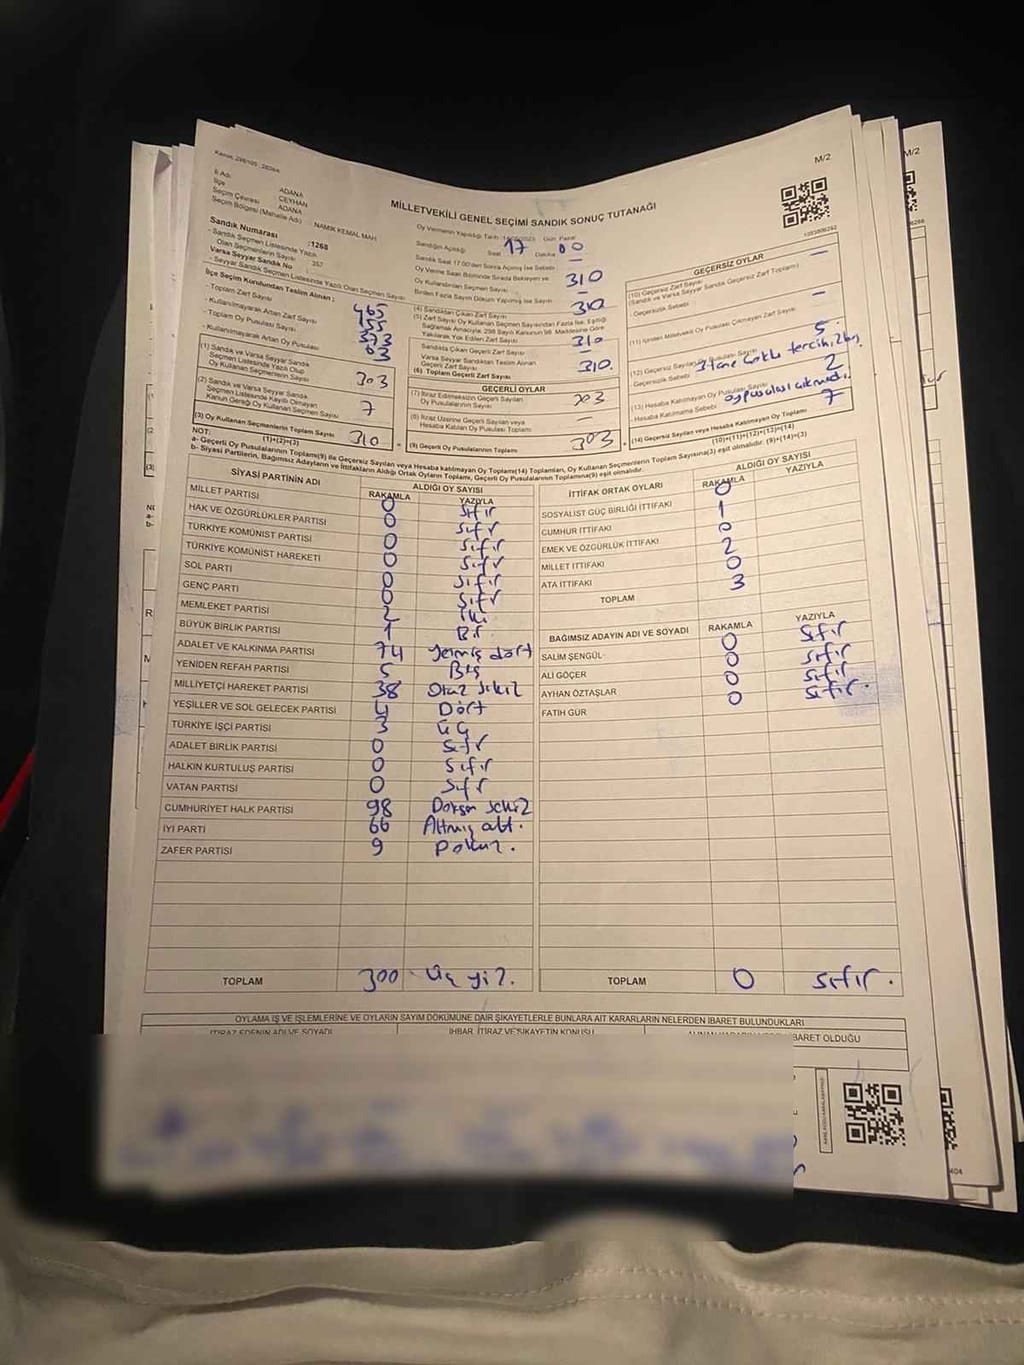 M/2
M/2
İli Adı ADANA
İlçe CEYHAN
Seçim Çevresi ADANA
Seçim Bölgesi (Mahalle Adı) NAMIK KEMAL MAH.
MİLLETVEKİLİ GENEL SEÇİMİ SANDIK SONUÇ TUTANAĞI
Sandık Numarası :1268
- Sandık Seçmen Listesinde Yazılı Olan Seçmenlerin Sayısı 357
Varsa Seyyar Sandık No
- Seyyar Sandık Seçmen Listesinde Yazılı Olan Seçmen Sayısı
Sandığın Açıldığı Saat 17 Dakika 00
Sandık Saat 17.00'den Sonra Açılmış İse Sebebi —
Oy Verme Saati Bitiminde Sırada Bekleyen ve Oy Kullandırılan Seçmen Sayısı 310
Birden Fazla Sayım Döküm Yapılmış İse Sayısı —
İlçe Seçim Kurulundan Teslim Alınan ;
- Toplam Zarf Sayısı 465
- Kullanılmayarak Artan Zarf Sayısı
- Toplam Oy Pusulası Sayısı
- Kullanılmayarak Artan Oy Pusulası
(1) Sandık ve Varsa Seyyar Sandık Seçmen Listesinde Yazılı Olup Oy Kullanan Seçmenlerin Sayısı 303
(2) Sandık ve Varsa Seyyar Sandık Seçmen Listesinde Kayıtlı Olmayan Kanun Gereği Oy Kullanan Seçmen Sayısı 7
(3) Oy Kullanan Seçmenlerin Toplam Sayısı 310
(1)+(2)=(3)
(4) Sandıktan Çıkan Zarf Sayısı 310
(5) Zarf Sayısı Oy Kullanan Seçmen Sayısından Fazla İse, Eşitliği Sağlamak Amacıyla, 298 Sayılı Kanunun 98. Maddesine Göre Yakılarak Yok Edilen Zarf Sayısı
Sandıkta Çıkan Geçerli Zarf Sayısı 310
Varsa Seyyar Sandıktan Teslim Alınan Geçerli Zarf Sayısı —
(6) Toplam Geçerli Zarf Sayısı 310
GEÇERLİ OYLAR
(7) İtiraz Edilmeksizin Geçerli Sayılan Oy Pusulalarının Sayısı 303
(8) İtiraz Üzerine Geçerli Sayılan veya Hesaba Katılan Oy Pusulası Toplamı —
(9) Geçerli Oy Pusulalarının Toplamı 303
GEÇERSİZ OYLAR
(10) Geçersiz Zarf Sayısı (Sandık ve Varsa Seyyar Sandık Geçersiz Zarf Toplamı) —
- Geçersizlik Sebebi
(11) İçinden Milletvekili Oy Pusulası Çıkmayan Zarf Sayısı —
(12) Geçersiz Sayılan Oy Pusulası Sayısı 5
- Geçersizlik Sebebi 3 tane Çoklu tercih, 2 boş
(13) Hesaba Katılmayan Oy Pusulası Sayısı 2
- Hesaba Katılmama Sebebi oy pusulası çıkmadı.
(14) Geçersiz Sayılan veya Hesaba Katılmayan Oy Toplamı 7
(10)+(11)+(12)+(13)=(14)
NOT:
a- Geçerli Oy Pusulalarının Toplamı(9) ile Geçersiz Sayılan veya Hesaba katılmayan Oy Toplam(14) Toplamları, Oy Kullanan Seçmenlerin Toplam Sayısına(3) eşit olmalıdır. (9)+(14)=(3)
b- Siyasi Partilerin, Bağımsız Adayların ve İttifakların Aldığı Ortak Oyların Toplamı, Geçerli Oy Pusulalarının Toplamına(9) eşit olmalıdır.
SİYASİ PARTİNİN ADI ALDIĞI OY SAYISI
RAKAMLA YAZIYLA
MİLLET PARTİSİ 0 Sıfır
HAK VE ÖZGÜRLÜKLER PARTİSİ 0 Sıfır
TÜRKİYE KOMÜNİST PARTİSİ 0 Sıfır
TÜRKİYE KOMÜNİST HAREKETİ 0 Sıfır
SOL PARTİ 0 Sıfır
GENÇ PARTİ 0 Sıfır
MEMLEKET PARTİSİ 2 İki
BÜYÜK BİRLİK PARTİSİ 1 Bir
ADALET VE KALKINMA PARTİSİ 74 Yetmiş dört
YENİDEN REFAH PARTİSİ 5 Beş
MİLLİYETÇİ HAREKET PARTİSİ 38 Otuz Sekiz
YEŞİLLER VE SOL GELECEK PARTİSİ 4 Dört
TÜRKİYE İŞÇİ PARTİSİ 3 Üç
ADALET BİRLİK PARTİSİ 0 Sıfır
HALKIN KURTULUŞ PARTİSİ 0 Sıfır
VATAN PARTİSİ 0 Sıfır
CUMHURİYET HALK PARTİSİ 98 Doksan Sekiz
İYİ PARTİ 66 Altmış altı.
ZAFER PARTİSİ 9 Dokuz.
TOPLAM 300 Üç yüz.
İTTİFAK ORTAK OYLARI ALDIĞI OY SAYISI
RAKAMLA YAZIYLA
SOSYALİST GÜÇ BİRLİĞİ İTTİFAKI 0
CUMHUR İTTİFAKI 1
EMEK VE ÖZGÜRLÜK İTTİFAKI 0
MİLLET İTTİFAKI 2
ATA İTTİFAKI 0
TOPLAM 3
BAĞIMSIZ ADAYIN ADI VE SOYADI RAKAMLA YAZIYLA
SALİM ŞENGÜL 0 Sıfır
ALİ GÖÇER 0 Sıfır
AYHAN ÖZTAŞLAR 0 Sıfır
FATİH GÜR 0 Sıfır.
TOPLAM 0 Sıfır.
OYLAMA İŞ VE İŞLEMLERİNE VE OYLARIN SAYIM DÖKÜMÜNE DAİR ŞİKAYETLERLE BUNLARA AİT KARARLARIN NELERDEN İBARET BULUNDUKLARI
İTİRAZ EDENİN ADI VE SOYADI İHBAR, İTİRAZ VE ŞİKAYETİN KONUSU İBARET OLDUĞU